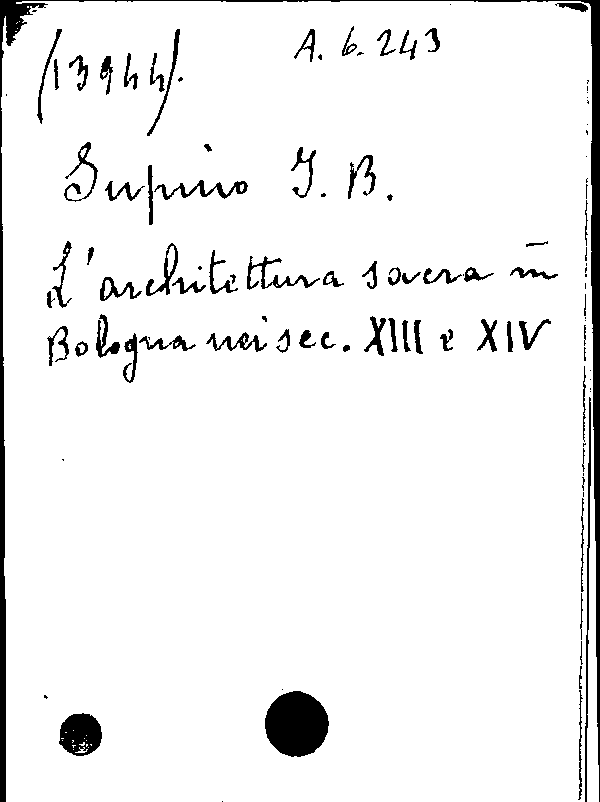 (13944).
A. 6. 243
Supino I. B.
L'architettura sacra in
Bologna nei sec. XIII e XIV